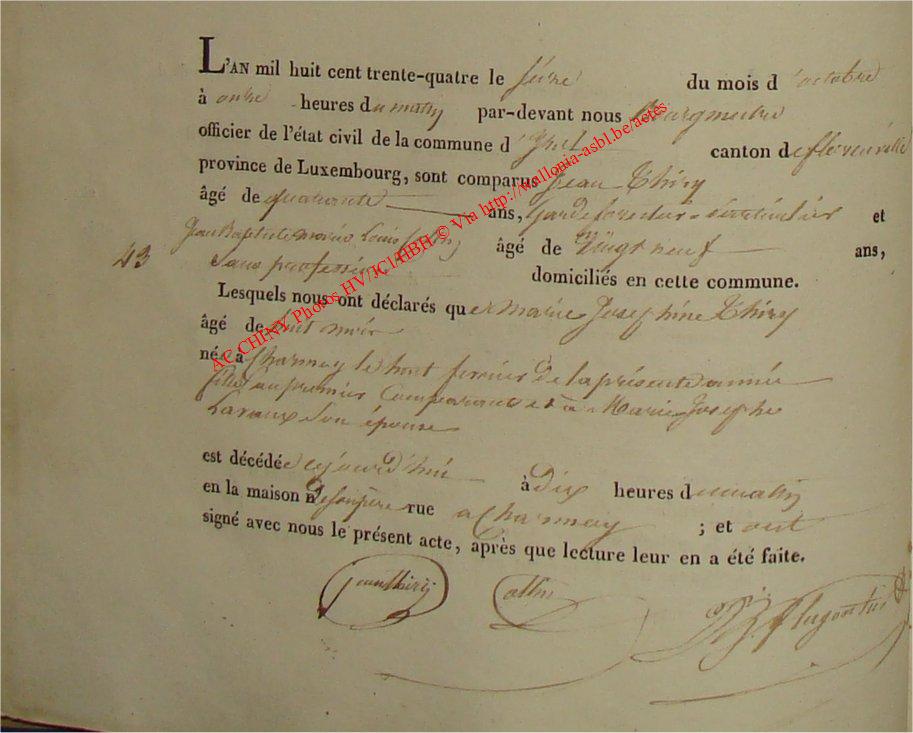 L'AN mil huit cent trente-quatre le seize du mois d'octobre
à onze heures du matin par-devant nous Bourgmestre
officier de l'état civil de la commune d canton de florenville
province de Luxembourg, sont comparus Jean Thiry
âgé de quarante ans, Garde forestier et
Jean Baptiste marius Louis âgé de vingt neuf ans,
43 Sans profession domiciliés en cette commune.
Lesquels nous ont déclarés que marie Josephine Thiry
âgé de huit mois
née à Charmay le huit fevrier de la présente année
fille du premier Comparant et à Marie Josephe
Lavaux son épouse
est décédée cejourd'hui à dix heures du matin
en la maison de son père rue a Charmay ; et ont
signé avec nous le présent acte, après que lecture leur en a été faite.
jean thiry
AC CHINY Photos HV/JCl/HBH © Via http://wallonia-asbl.be/actes